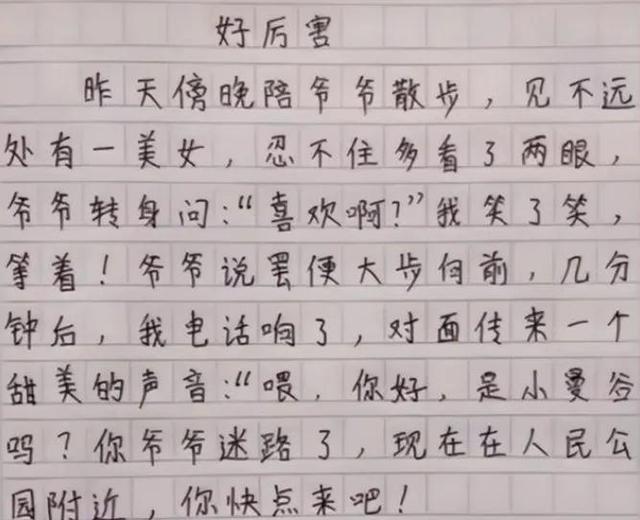 好厉害
昨天傍晚陪爷爷散步，见不远
处有一美女，忍不住多看了两眼，
爷爷转身问：“喜欢啊？”我笑了笑，
等着！爷爷说罢便大步向前，几分
钟后，我电话响了，对面传来一个
甜美的声音：“喂，你好，是小曼谷
吗？你爷爷迷路了，现在在人民公
园附近，你快点来吧！